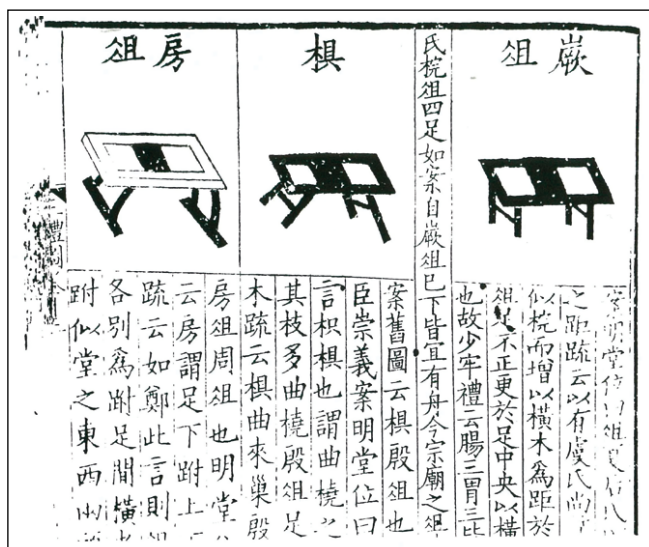 嶡俎
案明堂位曰俎夏后氏
之距疏云以有虞氏尚
似梡而增以橫木爲距於
俎足不正更於足中央以橫
也故少牢禮云腸三胃三
氏梡俎四足如案自嶡俎已下皆宜有舟今宗廟之俎
椇
案舊圖云椇殷俎也
臣崇義案明堂位曰
言枳椇也謂曲橈之
其枝多曲橈殷俎足
木疏云椇曲來巢殷
房俎
房俎周俎也明堂
云房謂足下跗上
疏云如鄭此言則
各別爲跗足間橫
跗似堂之東西